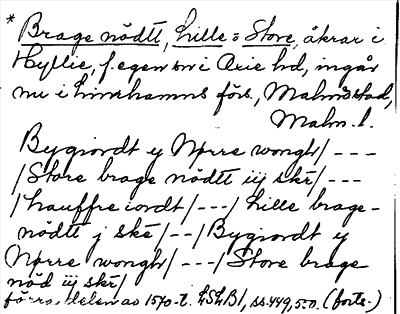 * Brage nödtt, Lille = Store, åkrar i
Hyllie, f. egen sn i Oxie hd, ingår
nu i Limhamns förs., Malmö stad,
Malm. l.
Bygiordt y Nørre wongh/ - - -
/Store brage nödtt iij skē/ - - -
/hauffre iordt/ - - -/ Lille brage-
nödtt j skē/ - -/ Bygiordt y
Nørre wongh/ - - -/ Store brage
nöd iij skē/
förra delen av 1570-t. LSLB1, ss. 449, 550. (forts.)